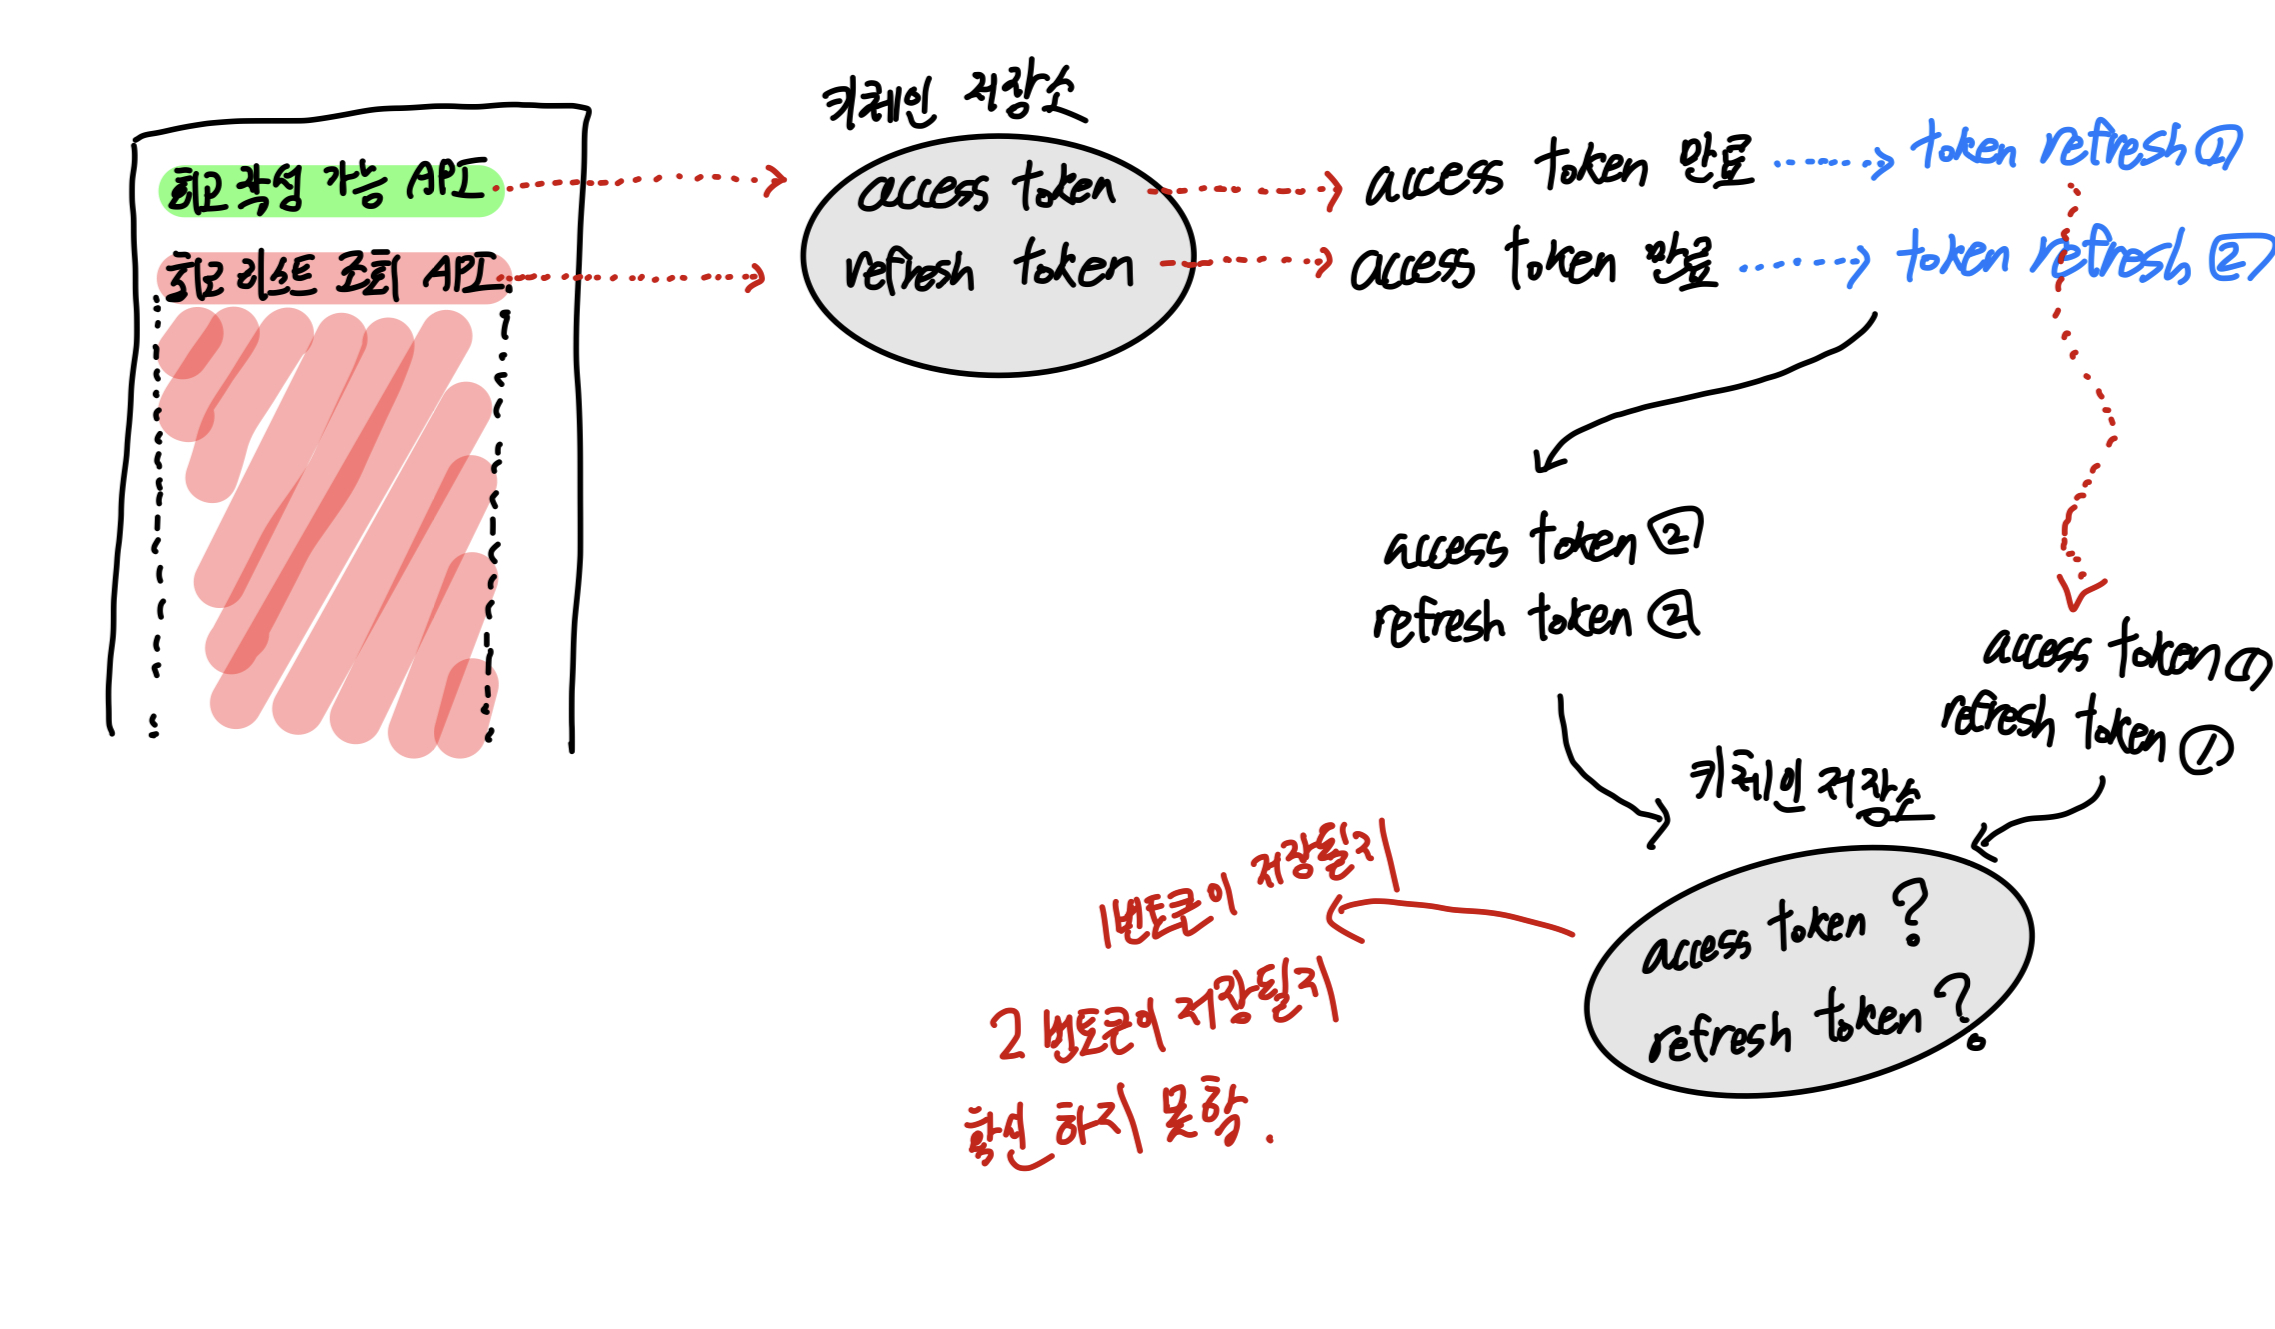 회고 작성 가능 API
회고 리스트 조회 API
키체인 저장소
access token
refresh token
access token 만료
access token 만료
token refresh ①
token refresh ②
access token ②
refresh token ②
access token ①
refresh token ①
키체인 저장소
access token ?
refresh token ?
1번토큰이 저장될지
2번토큰이 저장될지
확신 하지 못함.